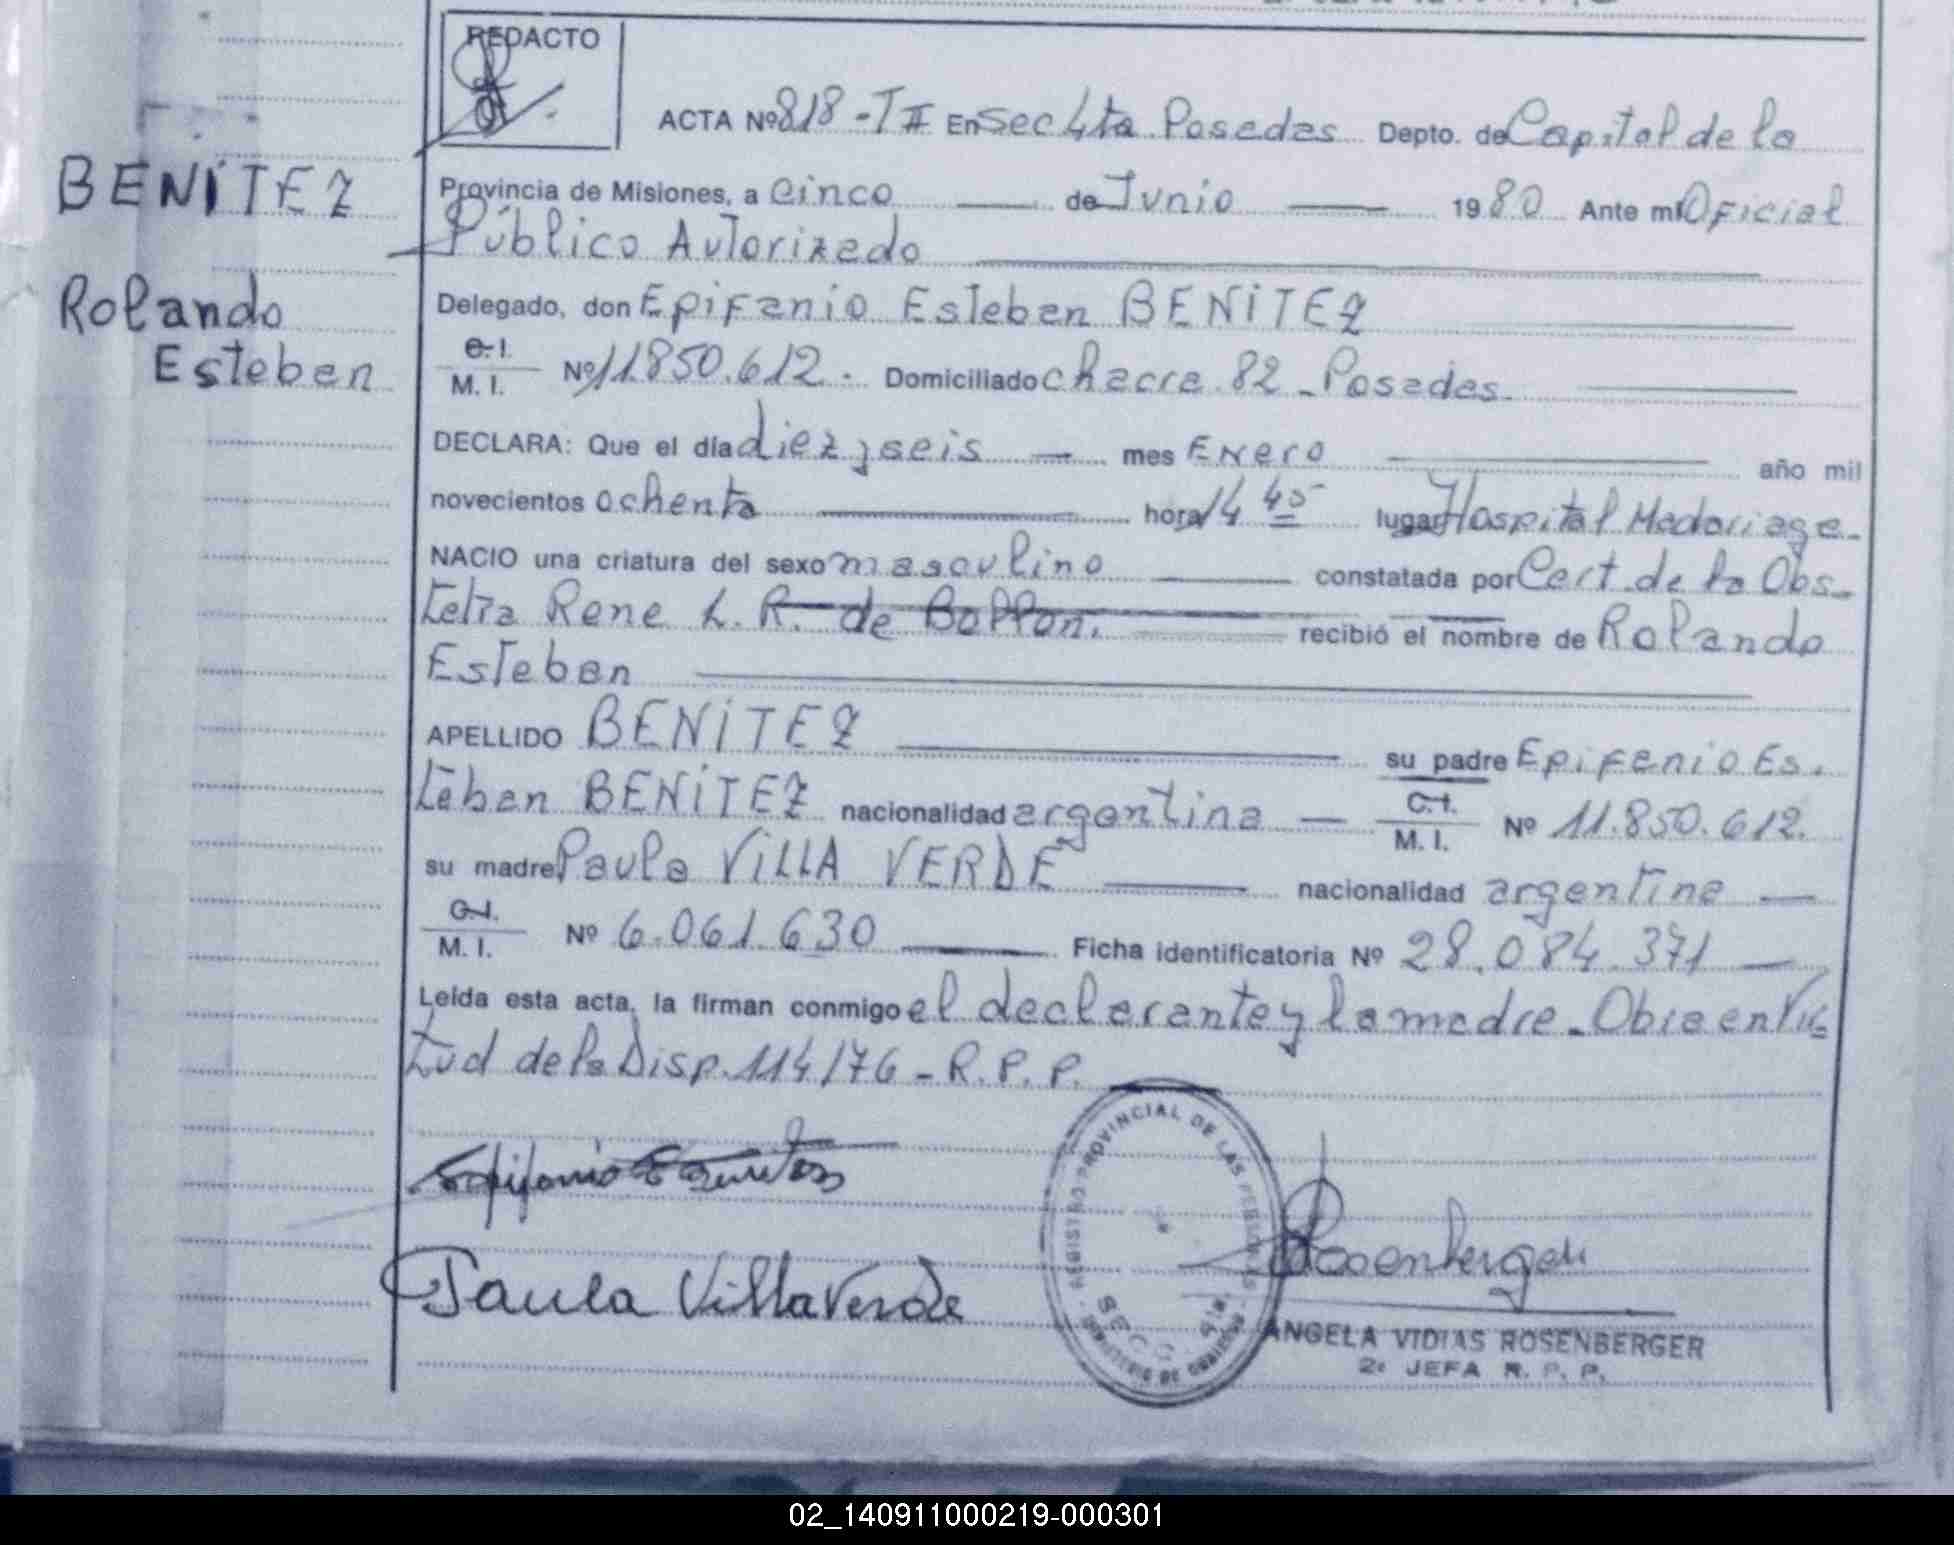 REDACTO
ACTA Nº 818 - T II En Sec 4ta Posadas Depto. de Capital de la
BENITEZ
Provincia de Misiones, a cinco de Junio 1980 Ante mí Oficial
Público Autorizado
Rolando
Esteban
Delegado, don Epifanio Esteban BENITEZ
C. I.
M. I. Nº 11.850.612. Domiciliado chacra 82 - Posadas.
DECLARA: Que el día diez y seis mes Enero año mil
novecientos ochenta hora 14 45 lugar Hospital Madariaga-
NACIO una criatura del sexo masculino constatada por Cert. de la Obs-
tetra Rene L. R. de Bollon. recibió el nombre de Rolando
Esteban
APELLIDO BENITEZ su padre Epifanio Es.
teban BENITEZ nacionalidad argentina C. I. M. I. Nº 11.850.612.
su madre Paula VILLA VERDE nacionalidad argentina
C. I.
M. I. Nº 6.061.630 Ficha identificatoria Nº 28.084.371
Leída esta acta, la firman conmigo el declarante y la madre - Obra en vir
tud de la Disp. 114/76 - R. P. P.
Epifanio E Benitez
Paula VillaVerde
REGISTRO PROVINCIAL DE LAS PERSONAS
SECC. 4ta.
MINISTERIO DE GOBIERNO
Rosenberger
ANGELA VIDIAS ROSENBERGER
2º JEFA R. P. P.
02_140911000219-000301